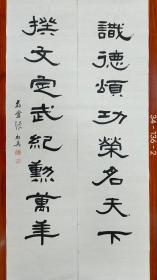 識德頌功榮名天下
撰文定武紀勳萬年
34-136-2